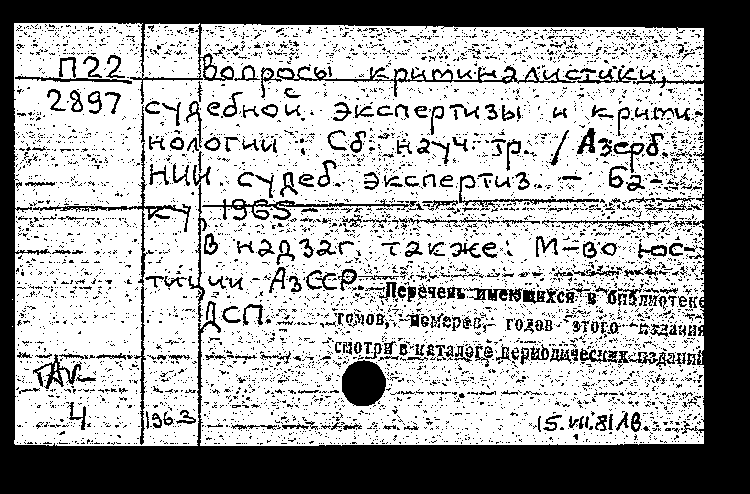 П22
2897
Вопросы криминалистики,
судебной экспертизы и крими-
нологии: Сб. науч. тр. / Азерб.
НИИ судеб. экспертиз. — Ба-
ку, 1965 —
В надзаг. также: М-во юс-
тиции АзССР.
ДСП.
Перечень имеющихся в библиотеке
томов, номеров, годов этого издания
смотри в каталоге периодических изданий
4
1963
15.VII.81